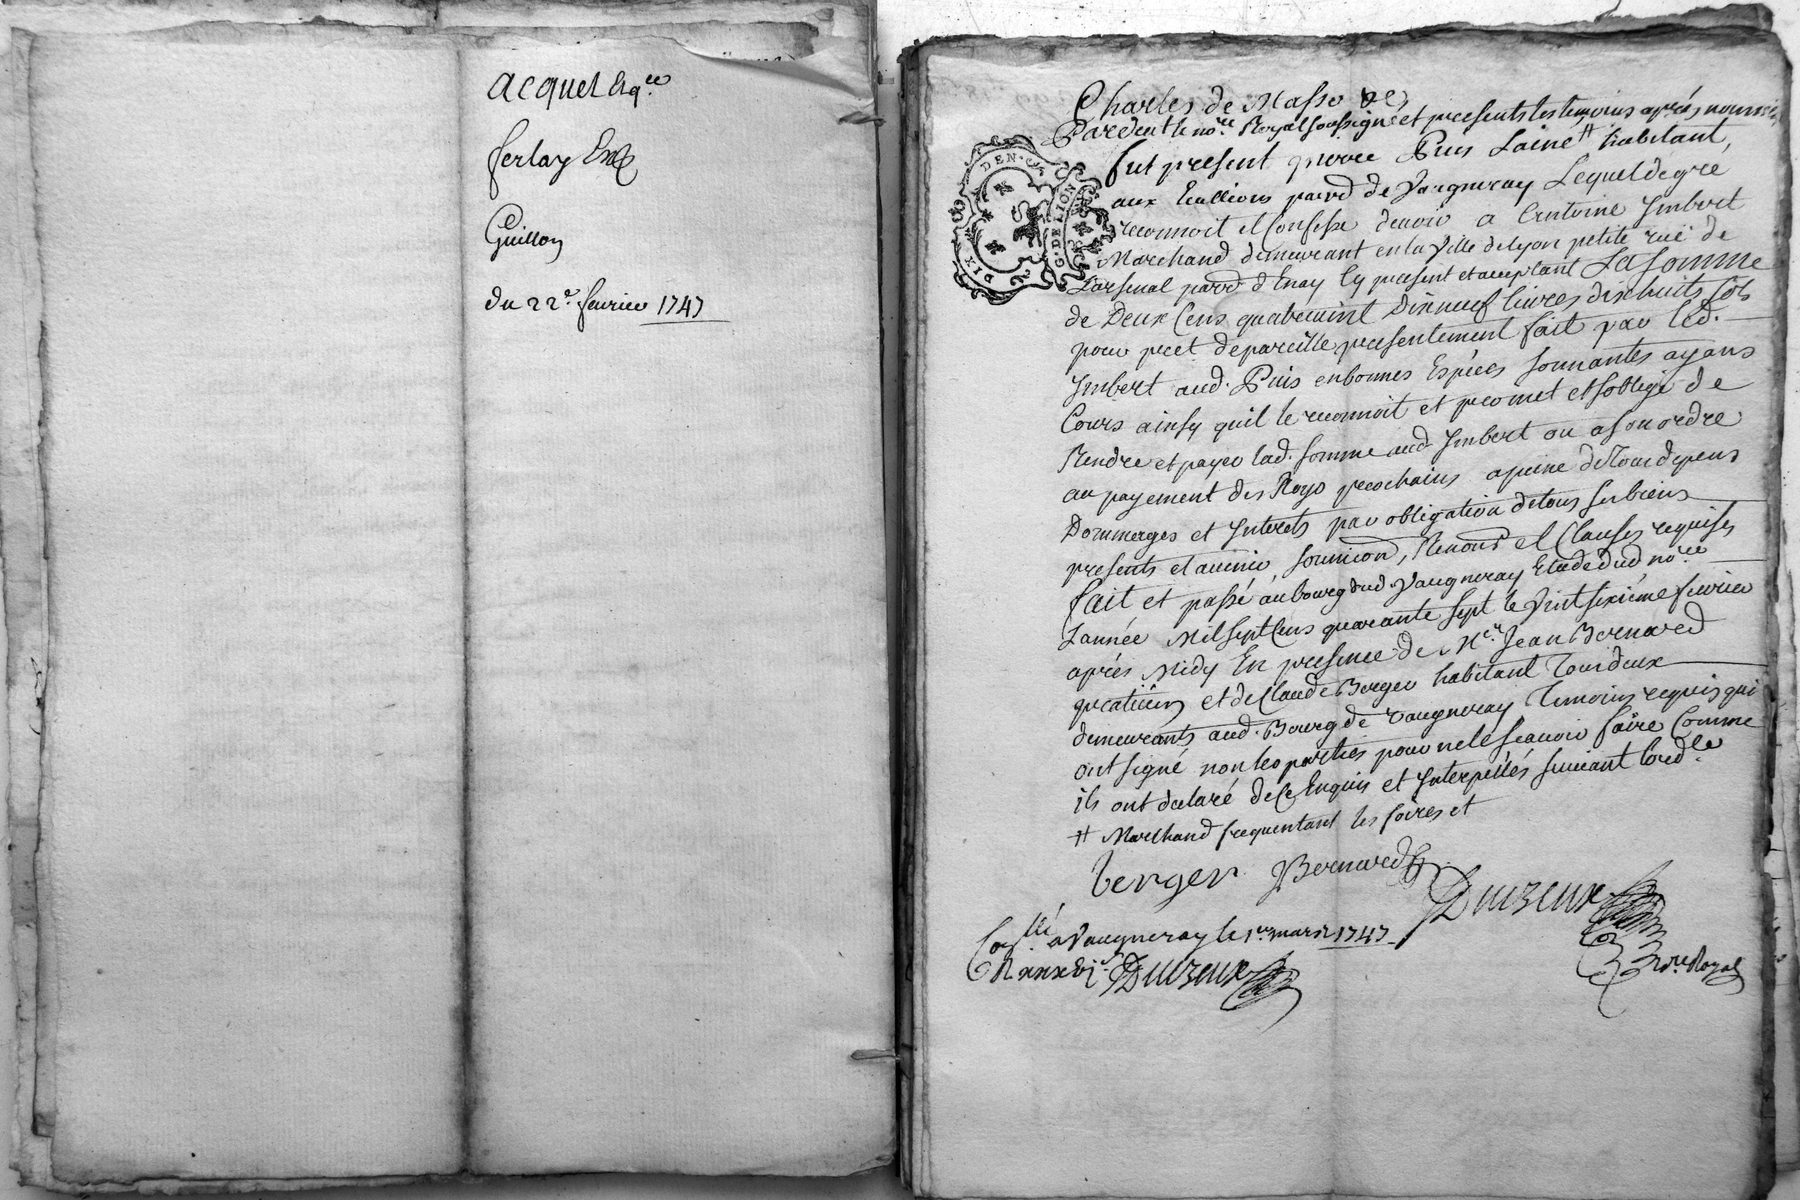 acquet
ferlay
Guillon
du 22e. fevrier 1747
Charles de Masso
Pardevt le nore. Royal soussigné et presents les temoins après nommés
fut present pierre Puis Lainé # habitant,
aux paroisse de Vaugneray Lequel de gré
reconnoit et Confesse devoir a Antoine Imbert
Marchand demeurant en la Ville de Lyon petite ruë de
Larsenal parr d'Enay Cy present et acceptant La somme
de Deux Cens quatrevint Dixneuf livres dixhuits sols
pour prest de pareille presentement fait par led.
Imbert aud. Puis en bonnes Espéces sonnantes ayans
Cours ainsy quil le reconnoit et promet et s'oblige de
Rendre et payer lad. somme aud Imbert ou a son ordre
au payement des Roys prochains a peine de tous depens
Dommages et Interets par obligation de tous ses biens
presents et avenir, soumiond, Renond et Clauses requises
fait et passé au bourg dud. Vaugneray Etude dud nore
Lannée Mil sept Cens quarante sept le Vint sixiéme fevrier
aprés Midy En presence de Me. Jean Bernard
praticien et de Claude Berger habitant Tous deux
demeurants aud. Bourg de Vaugneray Temoins requis qui
ont signé non les parties pour ne le sçavoir faire Comme
ils ont declaré de Ce Enquis et Interpellés suivant lord.ce
# Marchand frequentant les foires et
berger Bernard
Duizeux
Conllé a Vaugneray le 1er mars 1747
Duizeux
nre Royal
DIX DEN.
G. DE LION